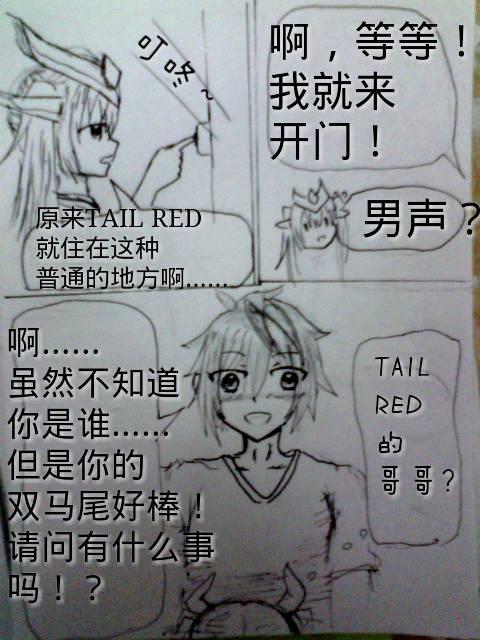 叮咚~
原来TAIL RED
就住在这种
普通的地方啊……
啊，等等！
我就来
开门！
男声？
啊……
虽然不知道
你是谁……
但是你的
双马尾好棒！
请问有什么事
吗！？
TAIL
RED
的
哥哥？